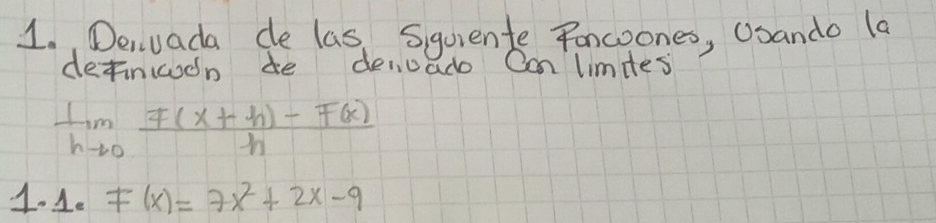 1. Derivada de las Siguiente Funciones, Usando la
definición de derivado Con limites
lim F(x+h) - F(x)
h→0 h
1.1. F(x) = 7x² + 2x - 9